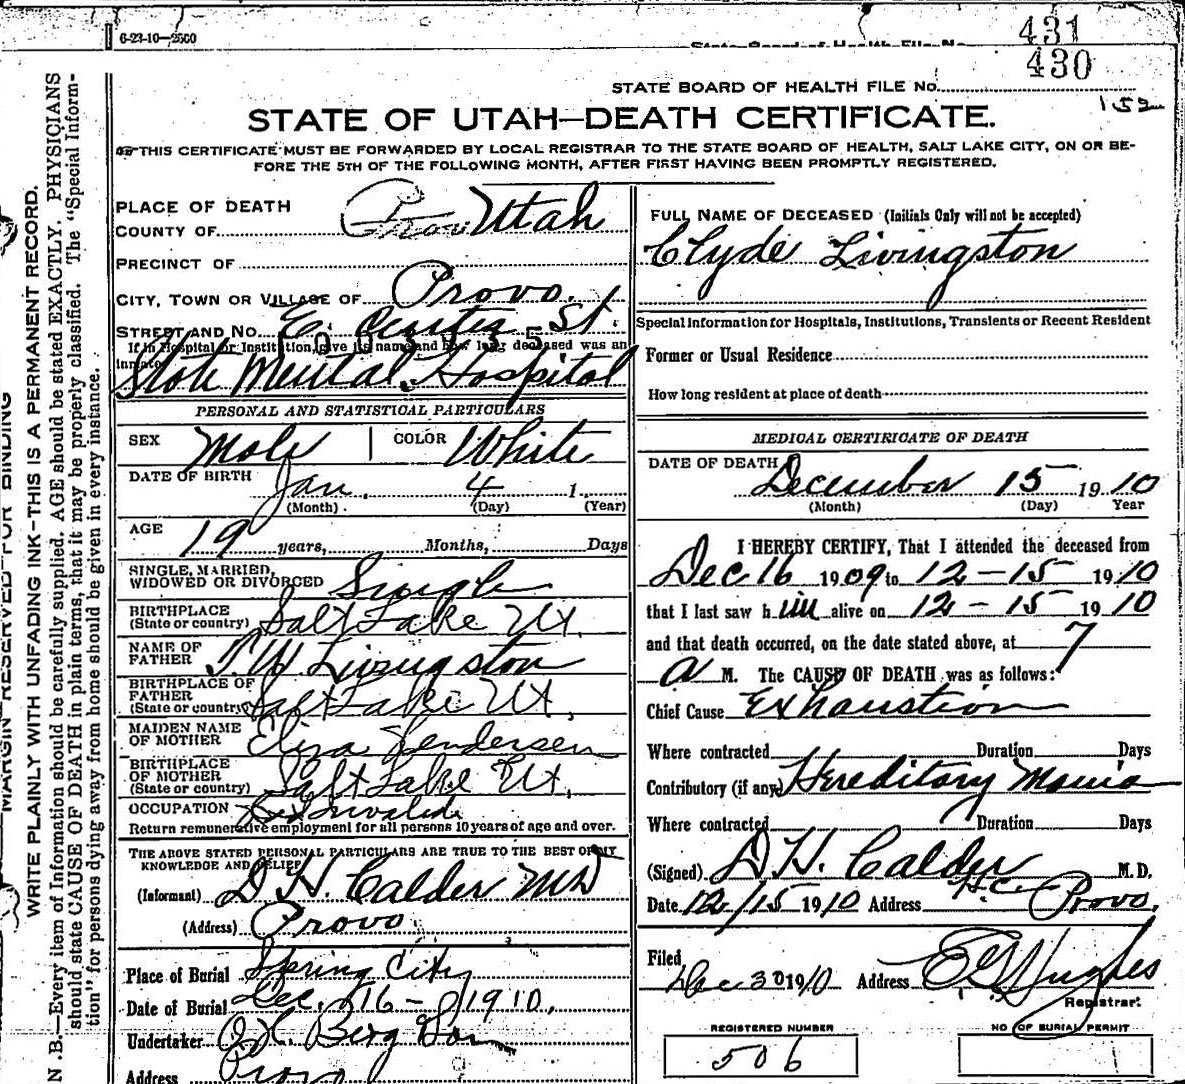 6-23-10—2500
431
430
STATE BOARD OF HEALTH FILE No.
152
STATE OF UTAH—DEATH CERTIFICATE.
THIS CERTIFICATE MUST BE FORWARDED BY LOCAL REGISTRAR TO THE STATE BOARD OF HEALTH, SALT LAKE CITY, ON OR BE-
FORE THE 5TH OF THE FOLLOWING MONTH, AFTER FIRST HAVING BEEN PROMPTLY REGISTERED.
MARGIN RESERVED FOR BINDING
WRITE PLAINLY WITH UNFADING INK—THIS IS A PERMANENT RECORD.
N .B.—Every item of Information should be carefully supplied. AGE should be stated EXACTLY. PHYSICIANS
should state CAUSE OF DEATH in plain terms, that it may be properly classified. The "Special Inform-
tion" for persons dying away from home should be given in every instance.
PLACE OF DEATH
COUNTY OF Utah
PRECINCT OF
CITY, TOWN OR VILLAGE OF Provo.
STREET AND No. E. Center St.
If in Hospital or Institution, give its name and how long deceased was an
inmate
State Mental Hospital
PERSONAL AND STATISTICAL PARTICULARS
SEX Male COLOR White
DATE OF BIRTH Jan. 4 1
(Month) (Day) (Year)
AGE 19 years, Months, Days
SINGLE, MARRIED,
WIDOWED OR DIVORCED Single
BIRTHPLACE
(State or country) Salt Lake Ut.
NAME OF
FATHER Livingston
BIRTHPLACE OF
FATHER
(State or country) Salt Lake Ut.
MAIDEN NAME
OF MOTHER Eliza Hendersen
BIRTHPLACE
OF MOTHER
(State or country) Salt Lake Ut.
OCCUPATION
Return remunerative employment for all persons 10 years of age and over.
THE ABOVE STATED PERSONAL PARTICULARS ARE TRUE TO THE BEST OF MY
KNOWLEDGE AND BELIEF
(Informant) D H. Calder MD
(Address) Provo
Place of Burial Spring City
Date of Burial Dec. 16 - 1910.
Undertaker Berg
Address Provo
FULL NAME OF DECEASED (Initials Only will not be accepted)
Clyde Livingston
Special Information for Hospitals, Institutions, Transients or Recent Resident
Former or Usual Residence
How long resident at place of death
MEDICAL CERTIFICATE OF DEATH
DATE OF DEATH December 15 1910
(Month) (Day) Year
I HEREBY CERTIFY, That I attended the deceased from
Dec 16 1909 to 12-15 1910
that I last saw him alive on 12-15 1910
and that death occurred, on the date stated above, at 7
a M. The CAUSE OF DEATH was as follows:
Chief Cause Exhaustion
Where contracted Duration Days
Contributory (if any) Hereditary Mania
Where contracted Duration Days
(Signed) D H. Calder M. D.
Date 12/15 1910 Address Provo.
Filed Dec 30 1910 Address E G Hughes
Registrar.
REGISTERED NUMBER
506
NO OF BURIAL PERMIT